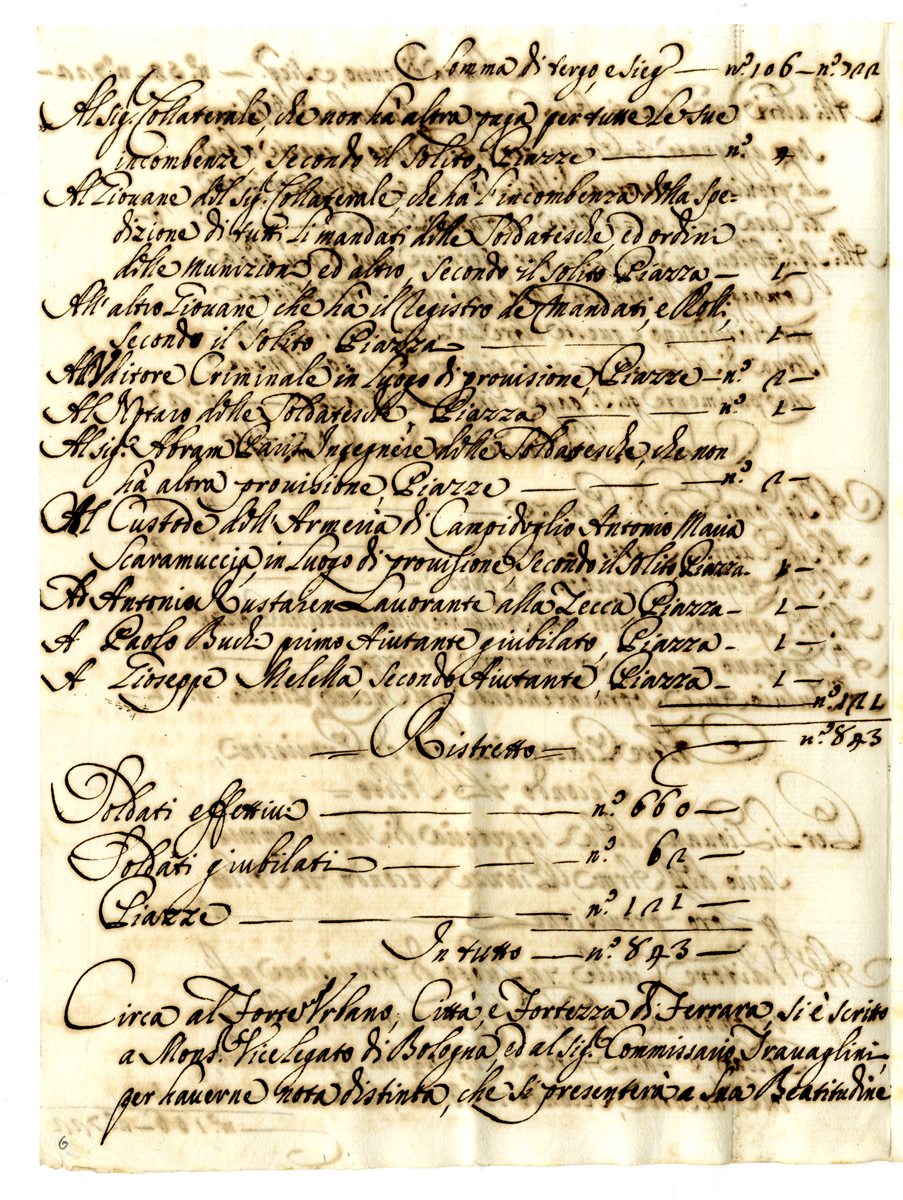 Somma di tergo, e sieg.e — n.o 106 — n.o 722
Al sig.r Collaterale, che non hà altra paga per tutte le sue
incombenze, secondo il solito, Piazze — n.o 4
Al Giovane del sig.r Collaterale, che hà l'incombenza della spe=
dizione di tutti li mandati delle Soldatesche, ed ordini
delle munizioni ed altro, secondo il solito Piazza — 1 —
All'altro Giovane che hà il Registro de Mandati, e Rolli,
secondo il solito Piazza — 1 —
All'Uditore Criminale in luogo di provisione, Piazze — n.o 2 —
Al Notaro delle Soldatesche, Piazza — n.o 1 —
Al sig.r Abram Paris Ingegniere delle Soldatesche, che non
hà altra provisione, Piazze — n.o 2 —
Al Custode dell'Armeria di Campidoglio Antonio Maria
Scaramuccia, in luogo di provisione, secondo il solito Piazza — 1 —
Ad Antonio Lavorante alla Zecca Piazza — 1 —
A Paolo Buch primo Aiutante giubilato, Piazza — 1 —
A Gioseppe Melella, secondo Aiutante, Piazza — 1 —
n.o 121
n.o 843
= Ristretto =
Soldati effettivi — n.o 660 —
Soldati giubilati — n.o 62 —
Piazze — n.o 121 —
In tutto — n.o 843 —
Circa al Forte Urbano, Città, e Fortezza di Ferrara, si è scritto
a Mons.r Vicelegato di Bologna, ed al sig.r Commissario Travaglini
per haverne nota distinta, che si presenterà a Sua Beatitudine
6